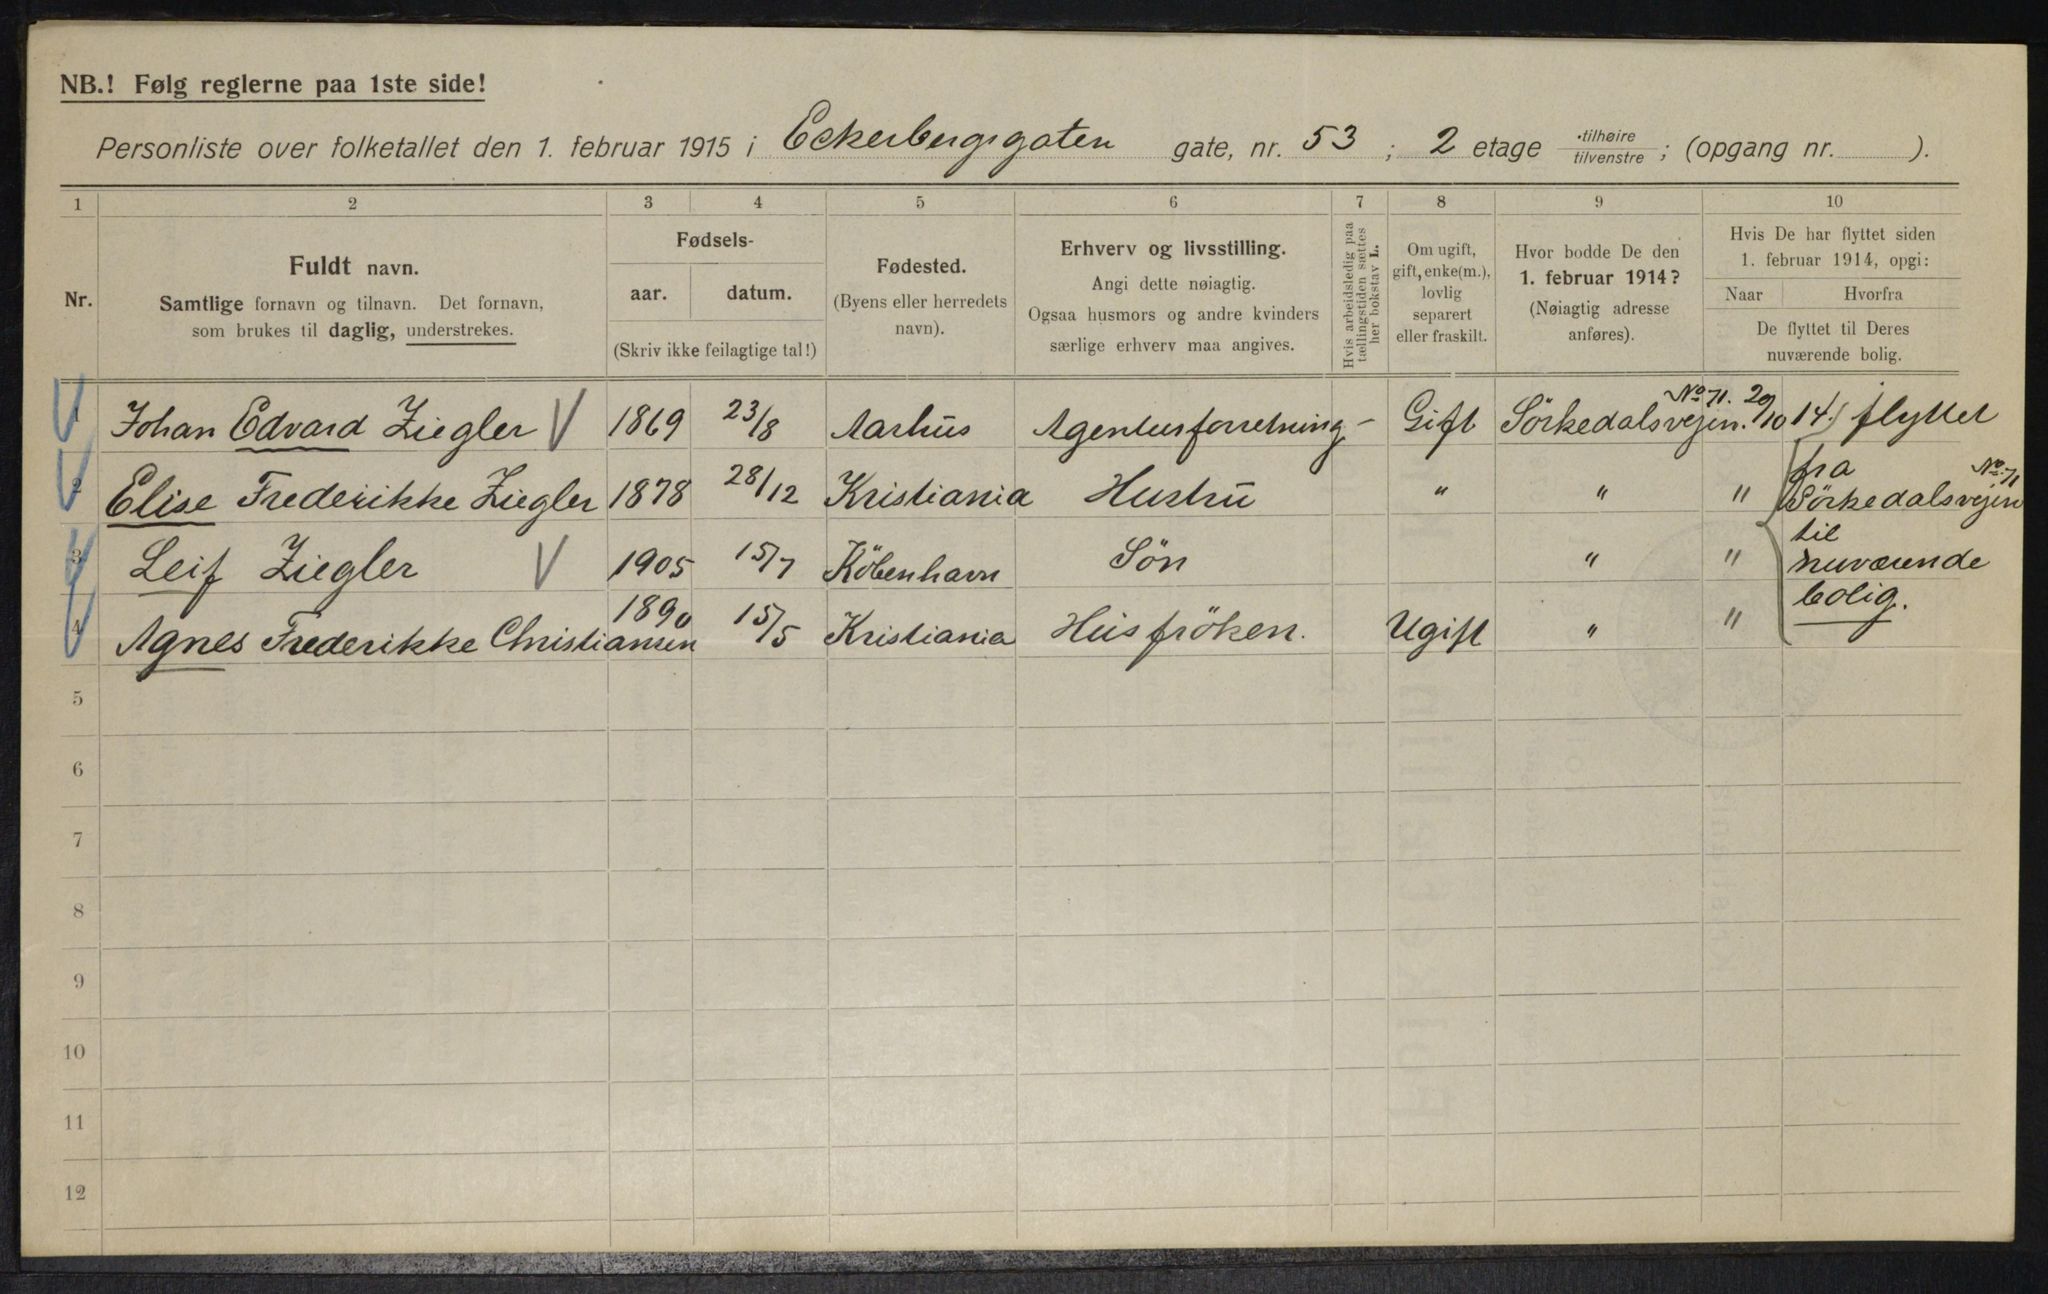 NB.! Følg reglerne paa 1ste side!
Personliste over folketallet den 1. februar 1915 i Eckersbergsgaten gate, nr. 53 ; 2 etage tilhøire/tilvenstre ; (opgang nr. ).
1 2 3 4 5 6 7 8 9 10
Nr.
Fuldt navn.
Samtlige fornavn og tilnavn. Det fornavn,
som brukes til daglig, understrekes.
Fødsels-
aar. datum.
(Skriv ikke feilagtige tal!)
Fødested.
(Byens eller herredets
navn).
Erhverv og livsstilling.
Angi dette nøiagtig.
Ogsaa husmors og andre kvinders
særlige erhverv maa angives.
Hvis arbeidsledig paa
tællingstiden sættes
her bokstav L.
Om ugift,
gift, enke(m.),
lovlig
separert
eller fraskilt.
Hvor bodde De den
1. februar 1914?
(Nøiagtig adresse
anføres).
Hvis De har flyttet siden
1. februar 1914, opgi:
Naar Hvorfra
De flyttet til Deres
nuværende bolig.
1 Johan Edvard Ziegler V 1869 23/8 Aarhus Agenturforretning - Gift Sörkedalsvejen. No 71. 29/10 14. flyttet
2 Elise Frederikke Ziegler 1878 28/12 Kristiania Hustru " " " fra Sörkedalsvejen No 71
3 Leif Ziegler V 1905 15/7 Köbenhavn Sön " " til nuværende
4 Agnes Frederikke Christiansen 1890 15/5 Kristiania Husfröken. Ugift " " bolig.
5
6
7
8
9
10
11
12